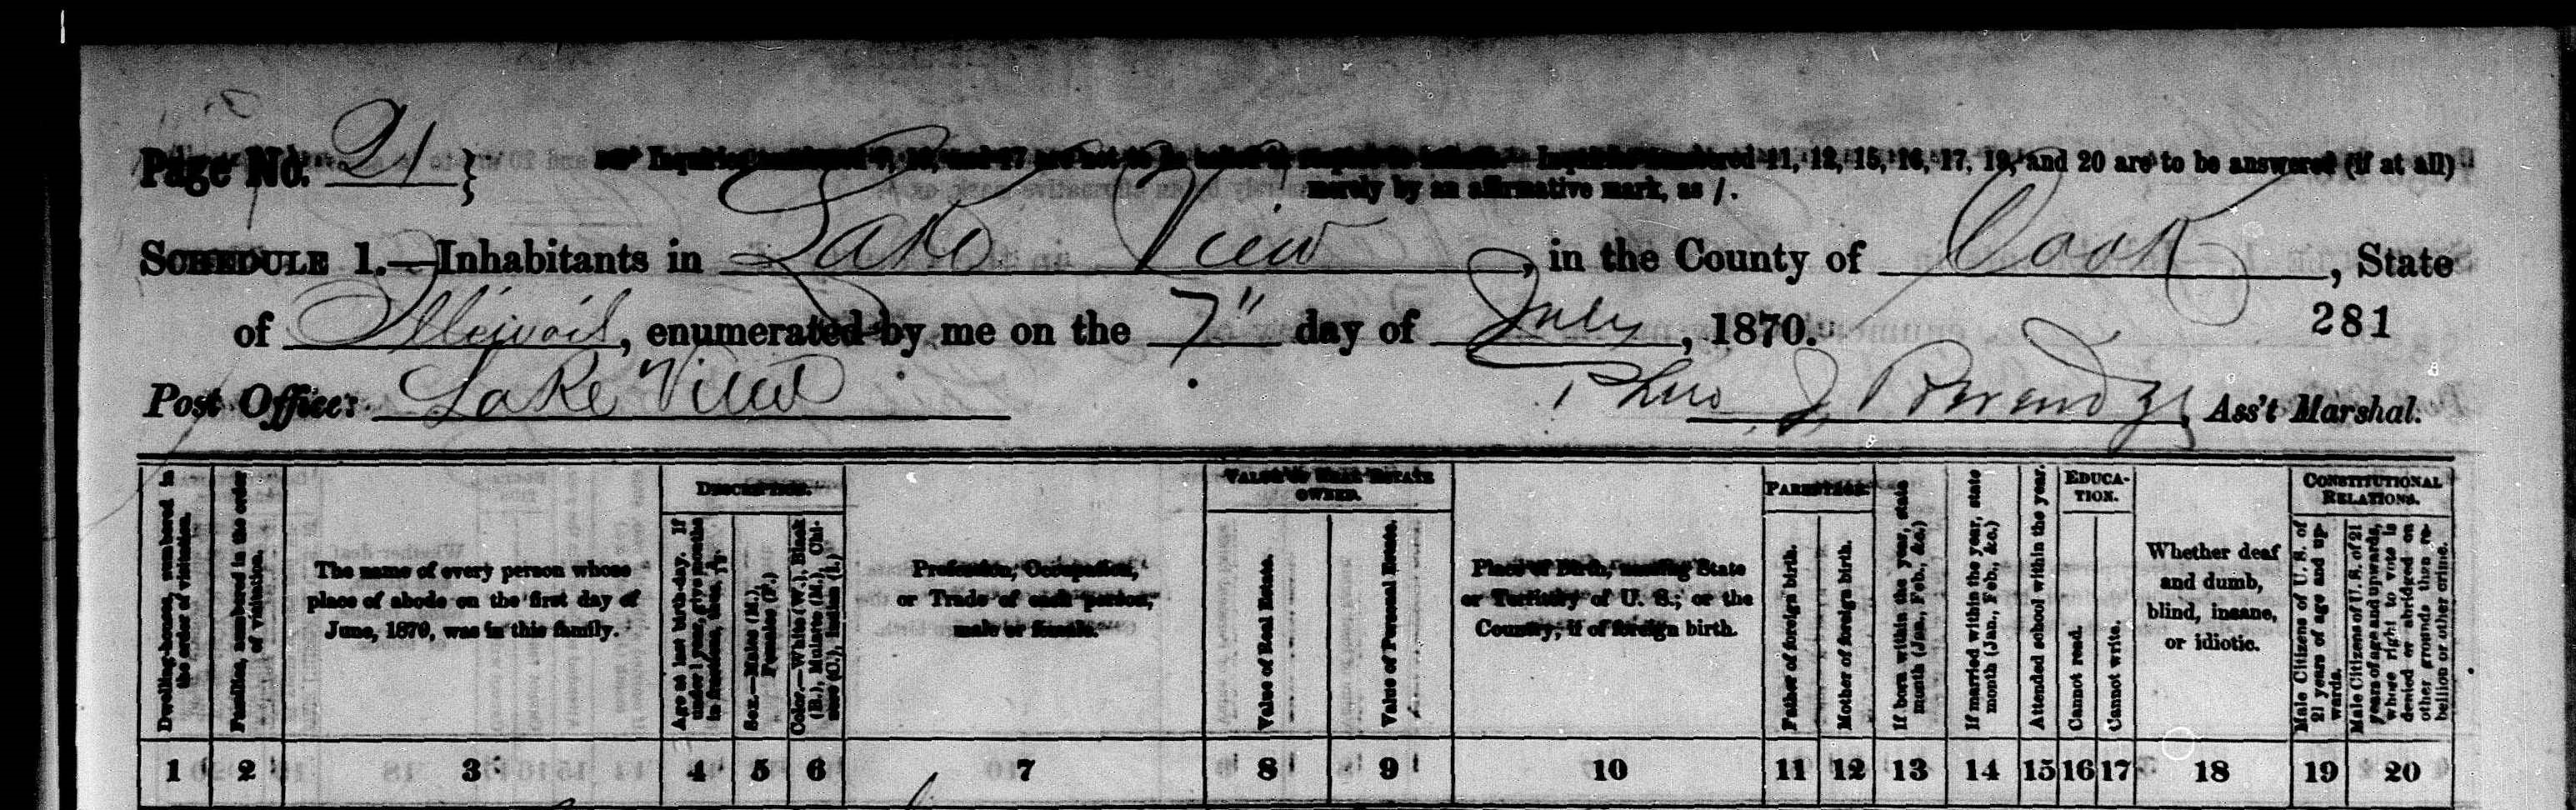 Page No. 21 } Inquiries numbered 7, 16, and 17 are not to be asked in respect to infants. Inquiries numbered 11, 12, 15, 16, 17, 19, and 20 are to be answered (if at all)
merely by an affirmative mark, as /.
SCHEDULE 1.—Inhabitants in Lake View, in the County of Cook, State
of Illinois, enumerated by me on the 7" day of July, 1870.
281
Post Office: Lake View
J, Ass't Marshal.
DESCRIPTION.
VALUE OF REAL ESTATE OWNED.
PARENTAGE.
EDUCATION.
CONSTITUTIONAL RELATIONS.
Dwelling-houses, numbered in the order of visitation.
Families, numbered in the order of visitation.
The name of every person whose
place of abode on the first day of
June, 1870, was in this family.
Age at last birth-day. If under 1 year, give months in fractions, thus, 3/12.
Sex.—Males (M.), Females (F.)
Color.—White (W.), Black (B.), Mulatto (M.), Chinese (C.), Indian (I.)
Profession, Occupation,
or Trade of each person,
male or female.
Value of Real Estate.
Value of Personal Estate.
Place of Birth, naming State
or Territory of U. S.; or the
Country, if of foreign birth.
Father of foreign birth.
Mother of foreign birth.
If born within the year, state month (Jan., Feb., &c.)
If married within the year, state month (Jan., Feb., &c.)
Attended school within the year.
Cannot read.
Cannot write.
Whether deaf
and dumb,
blind, insane,
or idiotic.
Male Citizens of U. S. of 21 years of age and upwards.
Male Citizens of U. S. of 21 years of age and upwards, whose right to vote is denied or abridged on other grounds than rebellion or other crime.
1 2 3 4 5 6 7 8 9 10 11 12 13 14 15 16 17 18 19 20